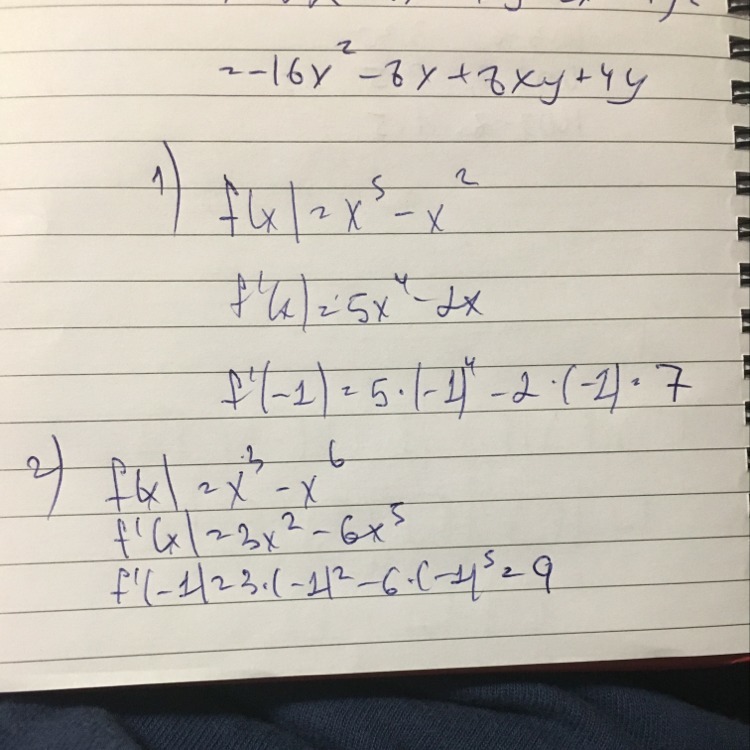 = -16x² - 8x + 8xy + 4y
1)
f(x) = x⁵ - x²
f'(x) = 5x⁴ - 2x
f'(-1) = 5·(-1)⁴ - 2·(-1) = 7
2)
f(x) = x³ - x⁶
f'(x) = 3x² - 6x⁵
f'(-1) = 3·(-1)² - 6·(-1)⁵ = 9